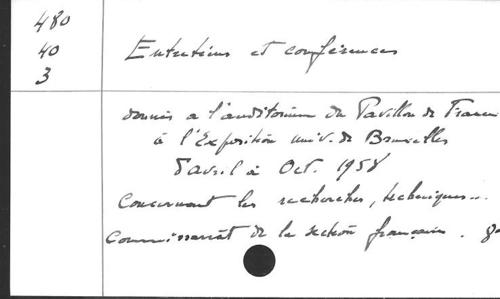 480
40
3
Entretiens et conférences
donnés à l'auditorium du Pavillon de France
à l'Exposition univ. de Bruxelles
d'avril à Oct. 1958
Concernant les recherches, techniques...
Commissariat de la section française.